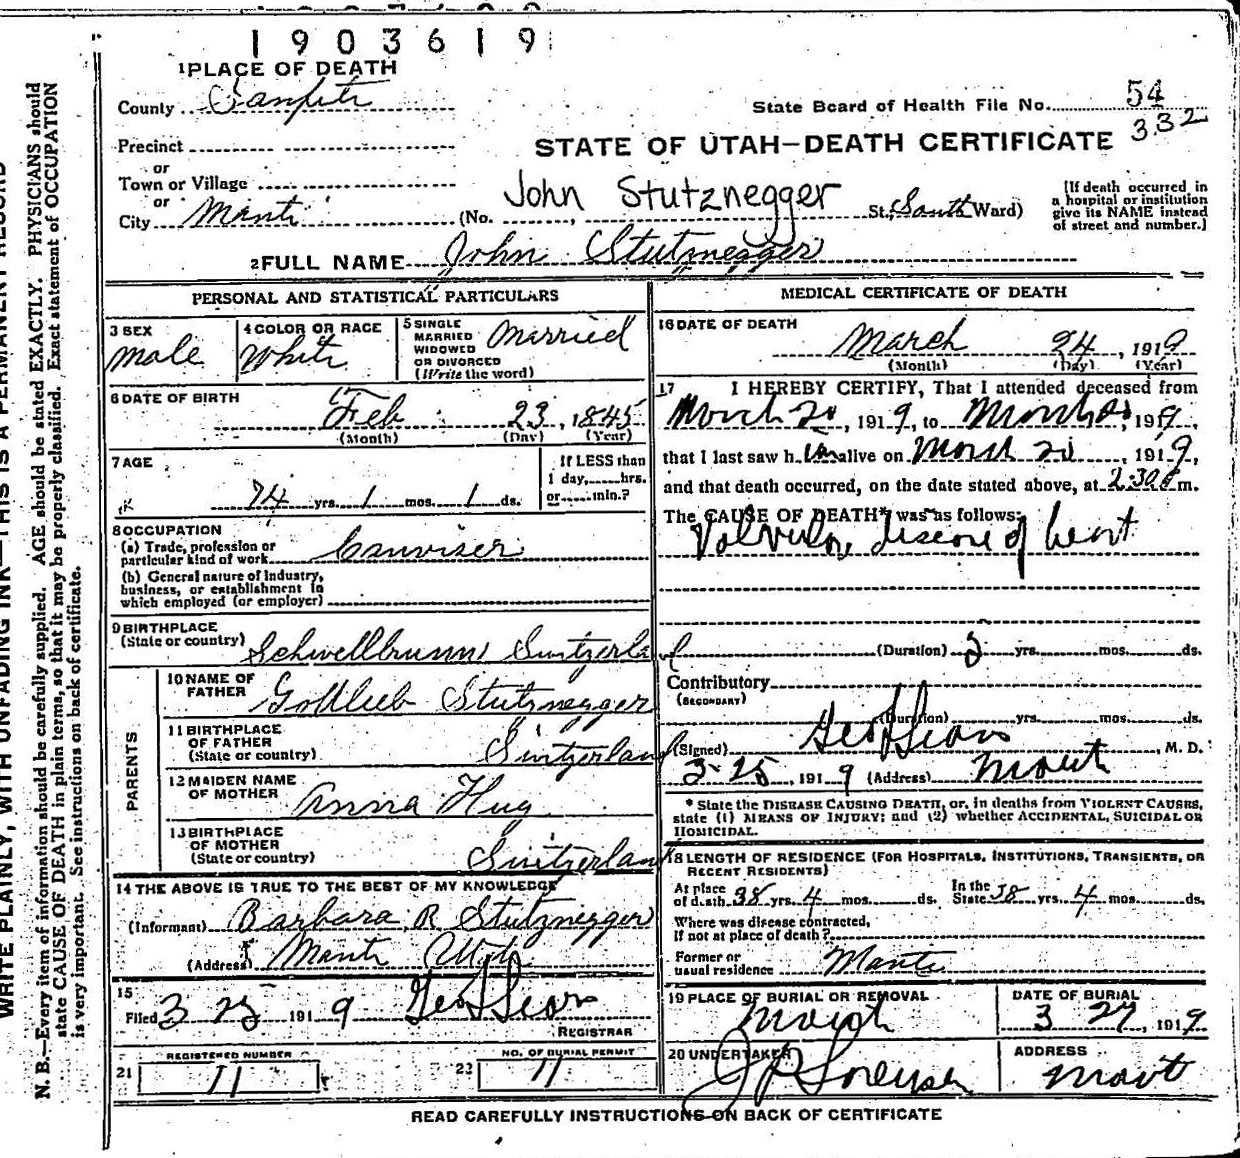 1903619
1 PLACE OF DEATH
County Sanpete
State Board of Health File No. 54
332
Precinct
STATE OF UTAH—DEATH CERTIFICATE
or
Town or Village
or
John Stutznegger
City Manti (No. St., South Ward)
[If death occurred in
a hospital or institution
give its NAME instead
of street and number.]
2 FULL NAME John Stutznegger
PERSONAL AND STATISTICAL PARTICULARS
3 SEX
Male
4 COLOR OR RACE
White
5 SINGLE
MARRIED
WIDOWED
OR DIVORCED
(Write the word)
Married
6 DATE OF BIRTH
Feb 23, 1845
(Month) (Day) (Year)
7 AGE
74 yrs. 1 mos. 1 ds.
If LESS than
1 day, hrs.
or min.?
8 OCCUPATION
(a) Trade, profession or
particular kind of work
(b) General nature of industry,
business, or establishment in
which employed (or employer)
9 BIRTHPLACE
(State or country) Schwellbrunn Switzerland
PARENTS
10 NAME OF
FATHER Gottlieb Stutznegger
11 BIRTHPLACE
OF FATHER
(State or country) Switzerland
12 MAIDEN NAME
OF MOTHER Anna Hug
13 BIRTHPLACE
OF MOTHER
(State or country) Switzerland
14 THE ABOVE IS TRUE TO THE BEST OF MY KNOWLEDGE
(Informant) Barbara R Stutznegger
(Address) Manti Utah
15
Filed 3 25 1919 Geo
REGISTRAR
REGISTERED NUMBER
21 11
NO. OF BURIAL PERMIT
22 11
MEDICAL CERTIFICATE OF DEATH
16 DATE OF DEATH
March 24, 1919
(Month) (Day) (Year)
17 I HEREBY CERTIFY, That I attended deceased from
March 20, 1919, to March, 1919,
that I last saw him alive on March 20, 1919,
and that death occurred, on the date stated above, at 2:30 m.
The CAUSE OF DEATH* was as follows:
Valvular disease of heart
(Duration) yrs. mos. ds.
Contributory
(SECONDARY)
(Duration) yrs. mos. ds.
(Signed) Geo, M. D.
3-25, 1919 (Address) Manti
* State the DISEASE CAUSING DEATH, or, in deaths from VIOLENT CAUSES,
state (1) MEANS OF INJURY; and (2) whether ACCIDENTAL, SUICIDAL OR
HOMICIDAL.
18 LENGTH OF RESIDENCE (FOR HOSPITALS, INSTITUTIONS, TRANSIENTS, OR
RECENT RESIDENTS)
At place
of death 38 yrs. 4 mos. ds.
In the
State 38 yrs. 4 mos. ds.
Where was disease contracted,
if not at place of death?
Former or
usual residence Manti
19 PLACE OF BURIAL OR REMOVAL
Manti
DATE OF BURIAL
3 27, 1919
20 UNDERTAKER
ADDRESS
Manti
READ CAREFULLY INSTRUCTIONS ON BACK OF CERTIFICATE
WRITE PLAINLY, WITH UNFADING INK—THIS IS A PERMANENT RECORD
N. B.—Every item of information should be carefully supplied. AGE should be stated EXACTLY. PHYSICIANS should
state CAUSE OF DEATH in plain terms, so that it may be properly classified. Exact statement of OCCUPATION
is very important. See instructions on back of certificate.